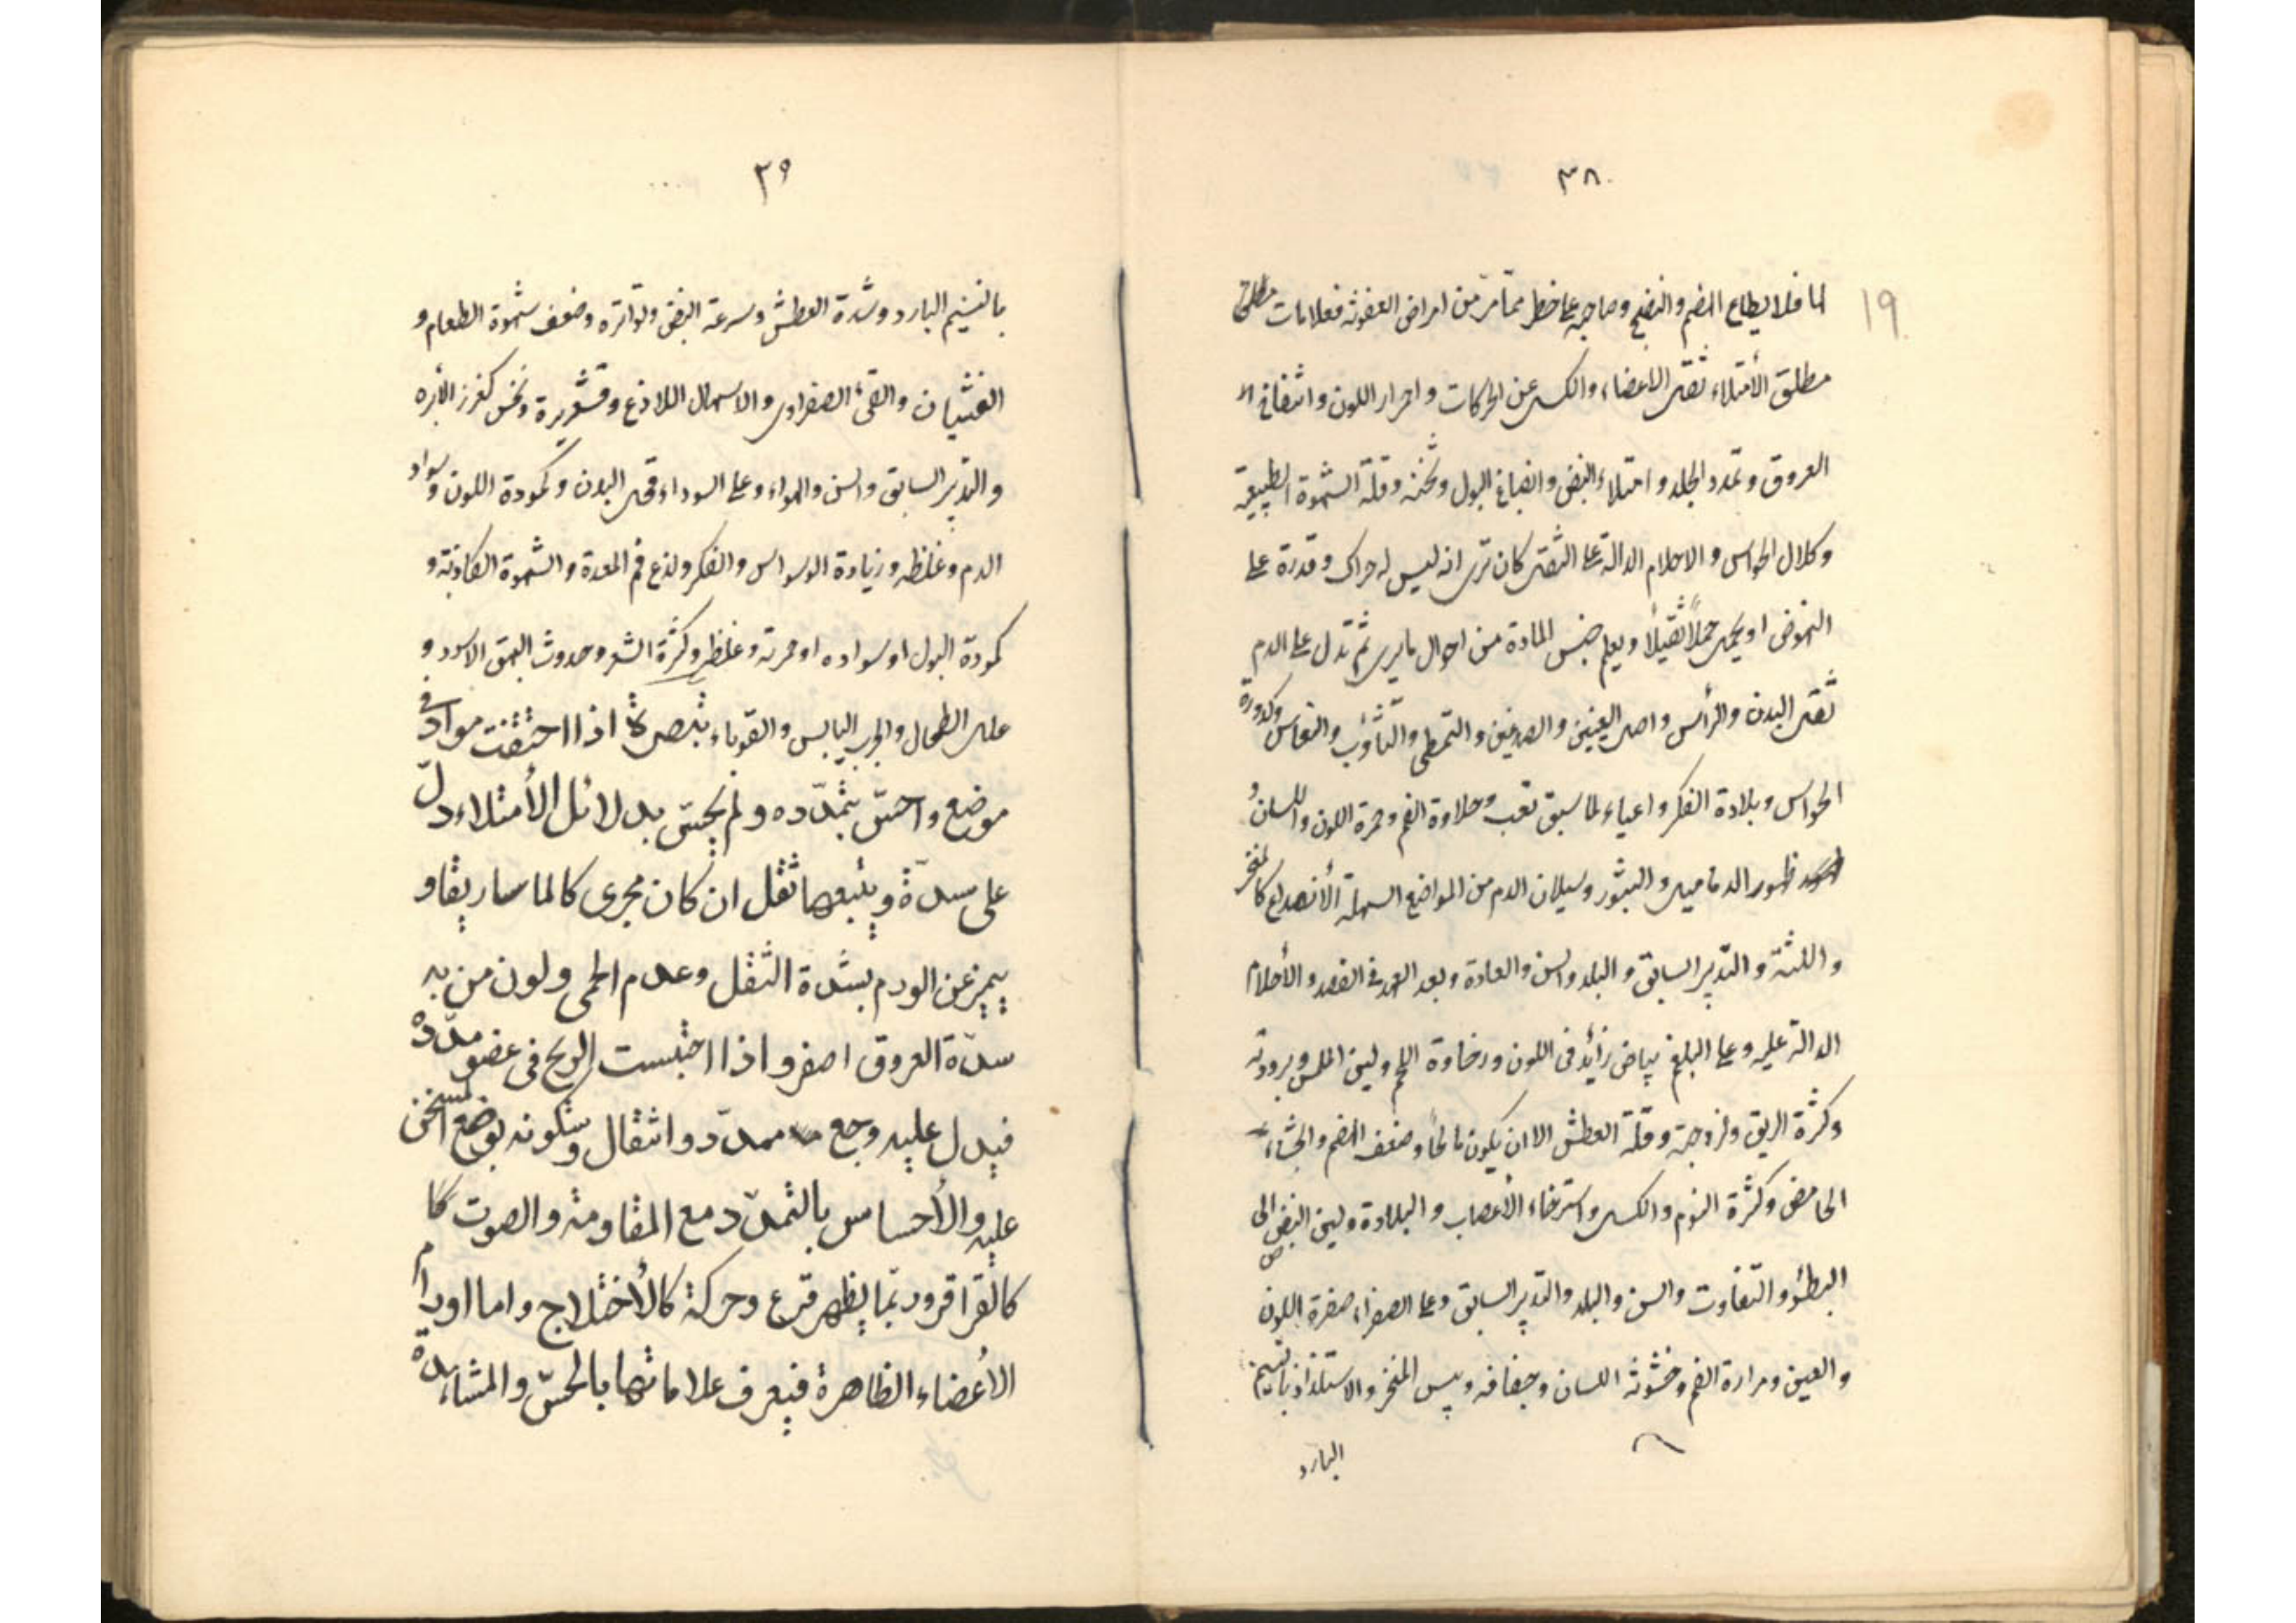 ٣٨
19
لها فلا يطاع الهضم والنضج وصاحبه على خطر مما مر من امراض العفونة فعلامات مطلق
مطلق الأمتلاء ثقل الاعضاء والكسل عن الحركات واحمرار اللون وانتفاخ ا
العروق وتمدد الجلد وامتلاء النبض وانصباغ البول وثخنه وقلة الشهوة الطبيعية
وكلال الحواس والاحلام الدالة على الثقل كان ترى انه ليس له حراك وقدرة على
النهوض او يحمل حملاً ثقيلاً ويعلم جنس المادة من احوال ما يرى ثم تدل على الدم
ثقل البدن والرأس واصل العينين والصدغين والتمطى والتثأوب والنعاس وكدورة
الحواس وبلادة الفكر واعياء لما سبق تعب وحلاوة الفم وحمرة اللون واللسان و
ظهور الدماميل والبثور وسيلان الدم من المواضع السهلة الأنصداع كالمنخر
واللثة والتدبير السابق والبلد والسن والعادة وبعد العهد فى الفصد والأحلام
الدالة عليه وعلى البلغم بياض زائد فى اللون ورخاوة اللحم ولين الملمس وبرودته
وكثرة الريق ولزوجته وقلة العطش الا ان يكون مالحاً وضعف الهضم والجشاء
الحامض وكثرة النوم والكسل واسترخاء الأعصاب والبلادة ولين النبض الى
البطؤ والتفاوت والسن والبلد والتدبير السابق وعلى الصفراء صفرة اللون
والعين ومرارة الفم وخشونة اللسان وجفافه ويبس المنخر والاستلذاذ بالنسيم
البارد
٣٩
بالنسيم البارد وشدة العطش وسرعة النبض وتواتره وضعف شهوة الطعام و
الغثيان والقىء الصفراوى والاسهال اللاذع وقشعريرة ونخس كغرز الأبره
والتدبير السابق والسن والهواء وعلى السوداء قحل البدن وكمودة اللون وسواد
الدم وغلظه وزيادة الوسواس والفكر ولذع فم المعدة والشهوة الكاذبة و
كمودة البول او سواده او حمرته وغلظه وكثرة الشعر وحدوث البهق الاسود و
علل الطحال والجرب اليابس والقوباء تبصرة اذا احتقنت مواد فى
موضع واحس بتمدّده ولم يحسّ بدلائل الأمتلاء دلّ
على سدّة ويتبعها ثقل ان كان مجرى كالماساريقا و
يميز عن الورم بشدة الثقل وعدم الحمى ولون من به
سدّة العروق اصفر واذا احتبست الريح فى عضو مدّده
فيدل عليه وجع ممدّد وانتقال وسكونه بوضع المسخن
عليه والأحساس بالتمدّد مع المقاومة والصوت كا
كالقراقر وربّما يظهر قرع وحركة كالأختلاج واما اورام
الأعضاء الظاهرة فيعرف علاماتها بالحسّ والمشاهدة